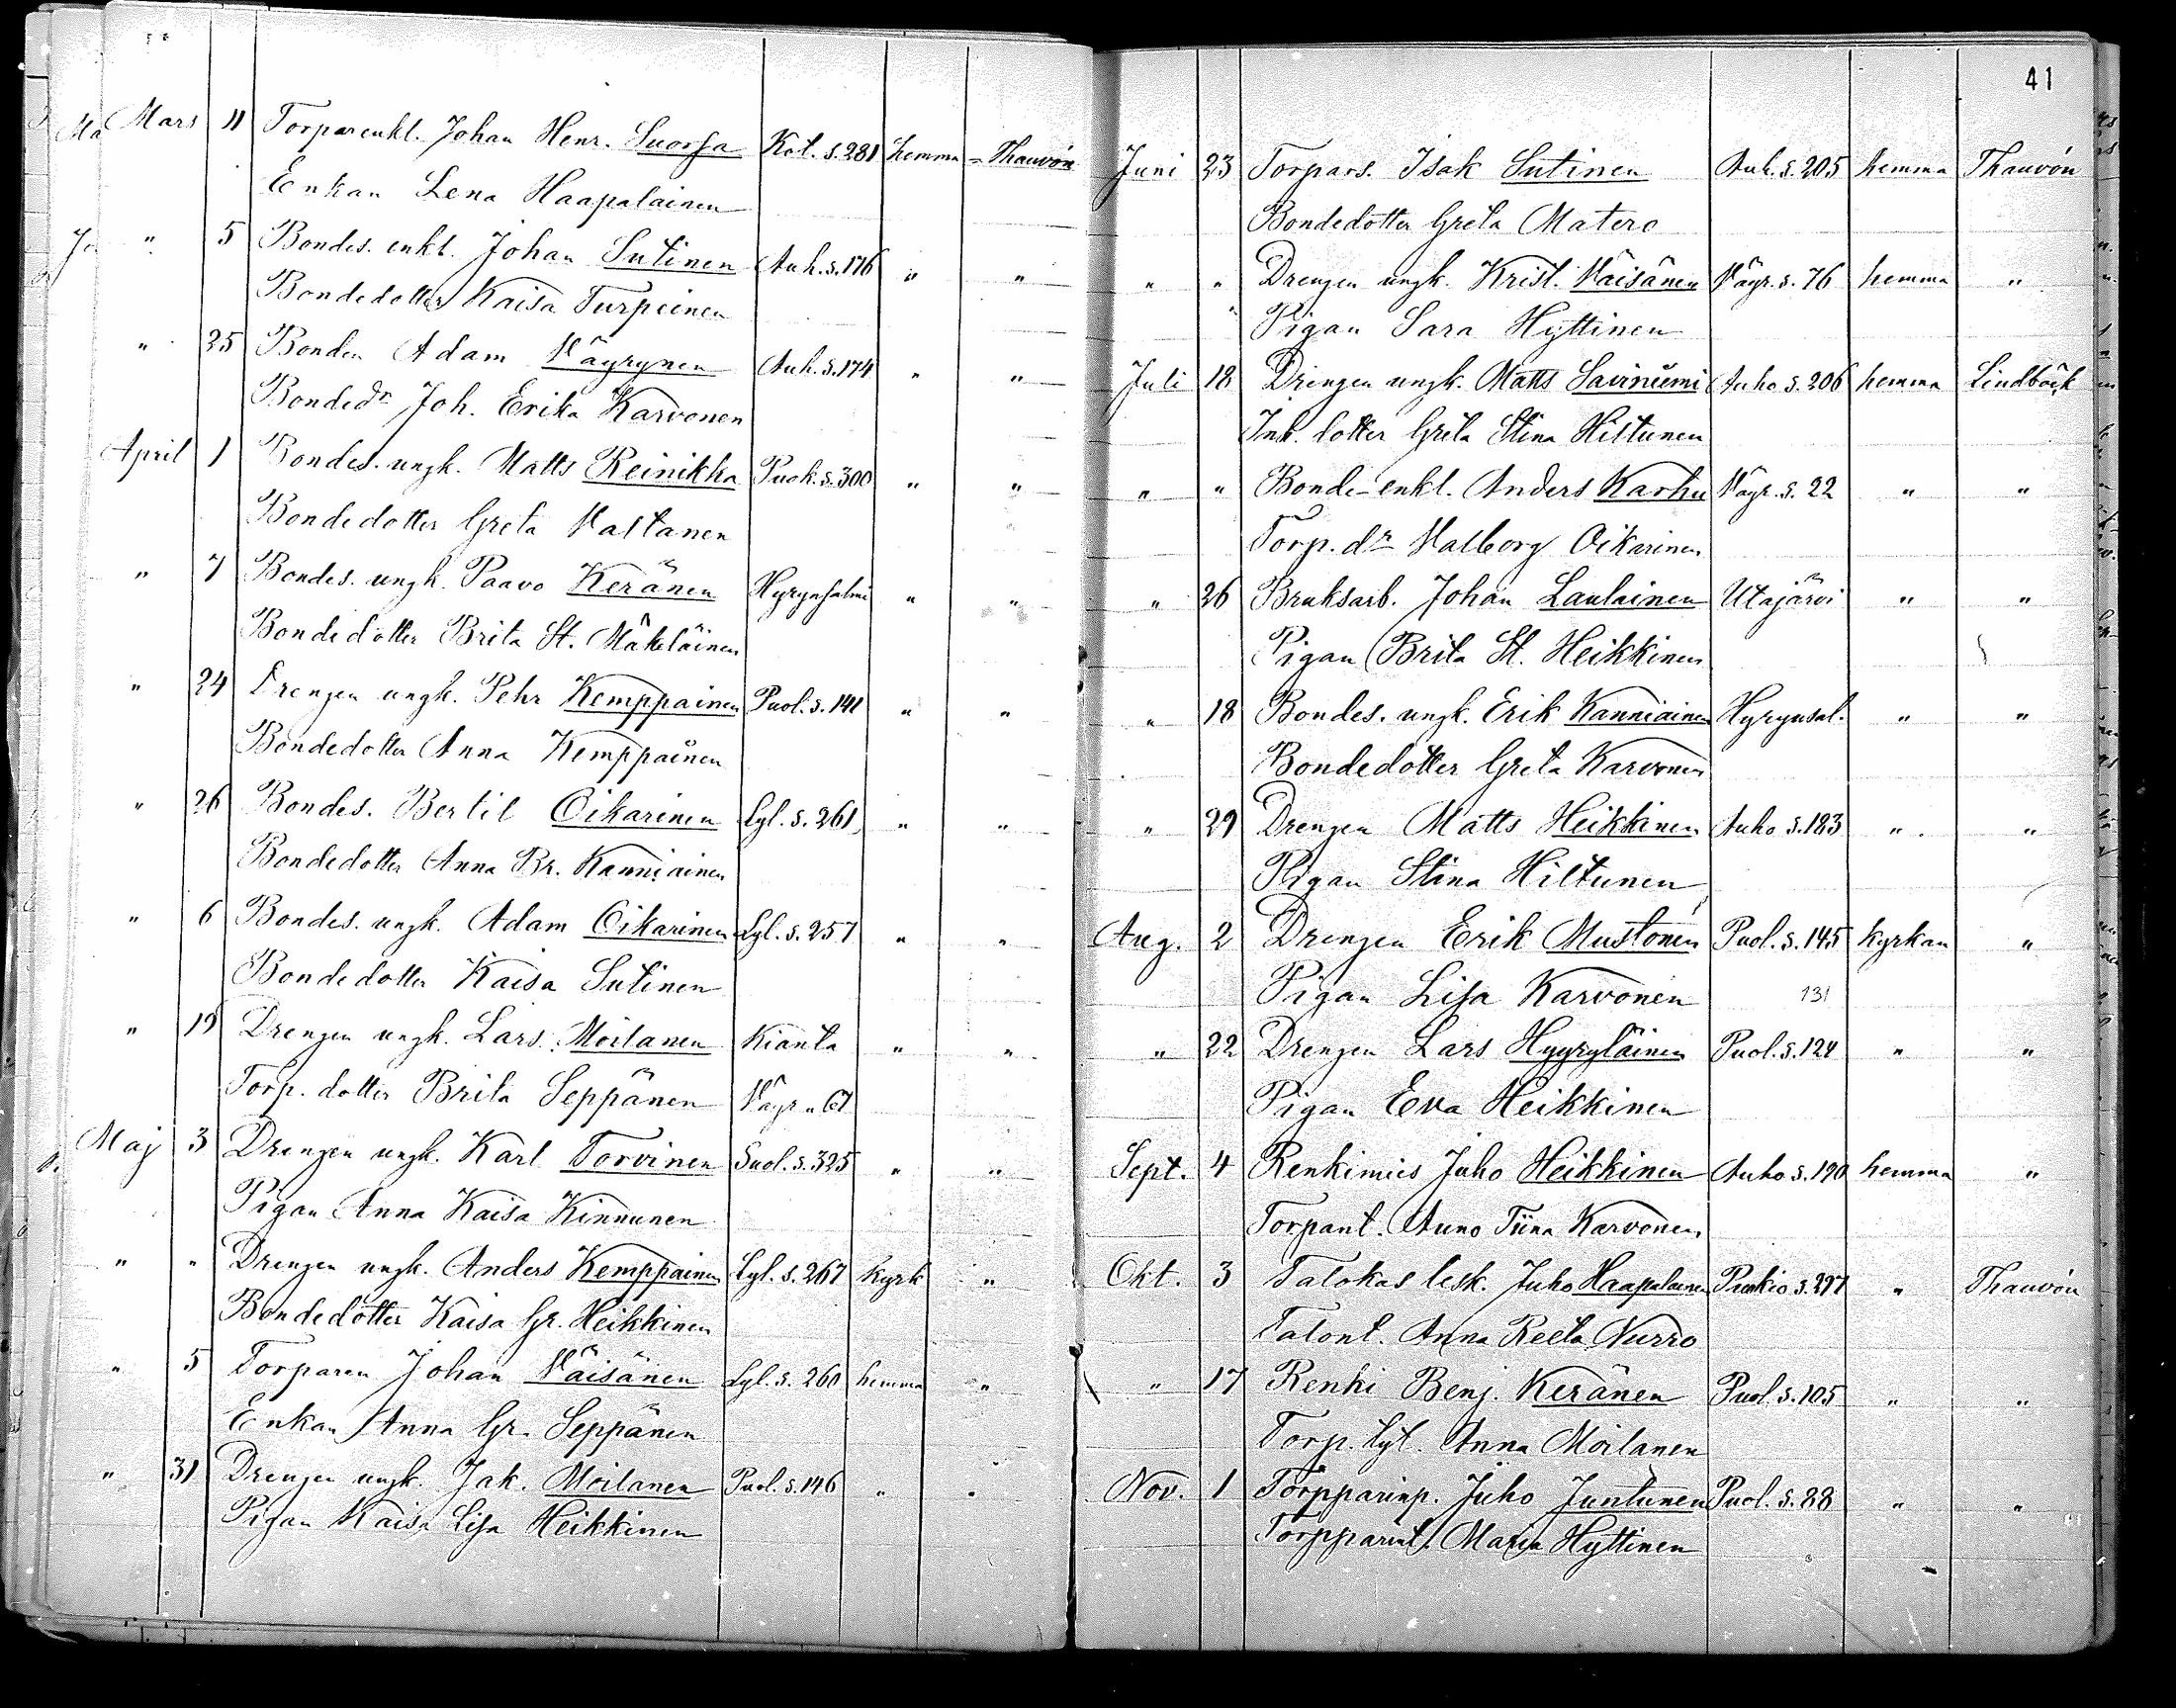 Mars 11 Torparenkl. Johan Henr. Suorsa Kot. s. 281 hemma Thauvón
Enkan Lena Haapalainen
" 5 Bondes. enkl. Johan Sutinen Auh. s. 176 " "
Bondedotter Kaisa Turpeinen
" 25 Bonden Adam Väyrynen Auh. s. 174 " "
Bondedr Joh. Erika Karvonen
April 1 Bondes. ungk. Matts Reinikka Puok. s. 300 " "
Bondedotter Greta Valtanen
" 7 Bondes. ungk. Paavo Keränen Hyrynsalmi " "
Bondedotter Brita St. Mäkeläinen
" 24 Drengen ungk. Pehr Kemppainen Puol. s. 141 " "
Bondedotter Anna Kemppainen
" 26 Bondes. Bertil Oikarinen Lyl. s. 261 " "
Bondedotter Anna Br. Kanniainen
" 6 Bondes. ungk. Adam Oikarinen Lyl. s. 257 " "
Bondedotter Kaisa Sutinen
" 19 Drengen ungk. Lars Moilanen Kianta " "
Torp. dotter Brita Seppänen Väyr. " 67
Maj 3 Drengen ungk. Karl Torvinen Suol. s. 325 " "
Pigan Anna Kaisa Kinnunen
" " Drengen ungk. Anders Kemppainen Lyl. s. 267 Kyrk "
Bondedotter Kaisa Gr. Heikkinen
" 5 Torparen Johan Väisänen Lyl. s. 260 hemma "
Enkan Anna Gr. Seppänen
" 31 Drengen ungk. Jak. Moilanen Puol. s. 146 " "
Pigan Kaisa Lisa Heikkinen
41
Juni 23 Torpars. Isak Sutinen Auh. s. 205 hemma Thauvón
Bondedotter Greta Matero
" " Drengen ungk. Krist. Väisänen Väyr. s. 76 hemma "
Pigan Sara Hyttinen
Juli 18 Drengen ungk. Matts Saviniemi Auho s. 206 hemma Lindbäck
Inh. dotter Greta Stina Hiltunen
" " Bonde-enkl. Anders Karhu Väyr. s. 22 " "
Torp. dr Valborg Oikarinen
" 26 Bruksarb. Johan Laulainen Utajärvi " "
Pigan Brita St. Heikkinen
" 18 Bondes. ungk. Erik Kanniainen Hyrynsal. " "
Bondedotter Greta Karvonen
" 29 Drengen Matts Heikkinen Auho s. 183 " "
Pigan Stina Hiltunen
Aug. 2 Drengen Erik Mustonen Puol. s. 145 Kyrkan "
Pigan Lisa Karvonen 131
" 22 Drengen Lars Hyyryläinen Puol. s. 124 " "
Pigan Eva Heikkinen
Sept. 4 Renkimies Juho Heikkinen Auho s. 190 hemma "
Torpant. Auno Tiina Karvonen
Okt. 3 Talokas lesk. Juho Haapalainen Puokio s. 297 " Thauvón
Talont. Anna Reeta Nurro
" 17 Renki Benj. Keränen Puol. s. 105 " "
Torp. tyt. Anna Moilanen
Nov. 1 Torpparinp. Juho Juntunen Puol. s. 88 " "
Torpparint. Maria Hyttinen